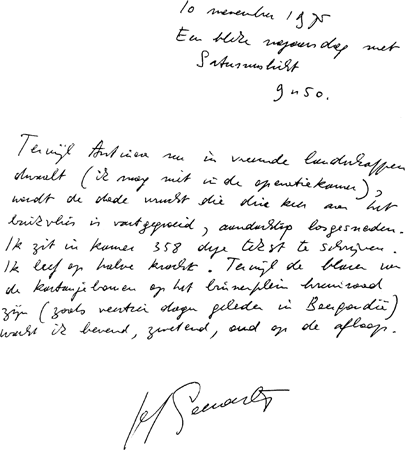 10 november 1975
Een bleke najaarsdag met
Saturnuslicht
9 u 50.
Terwijl nu in vreemde landschappen
dwaalt (ik mag niet in de operatiekamer),
wordt de dode vrucht die drie keer aan het
buikvlies is vastgegroeid, aandachtig losgesneden.
Ik zit in kamer 358 deze tekst te schrijven.
Ik leef op halve kracht. Terwijl de blaren van
de kastanjebomen op het binnenplein bruinrood
zijn (zoals veertien dagen geleden in Bourgondië)
wacht ik bevend, zwetend, oud op de afloop.